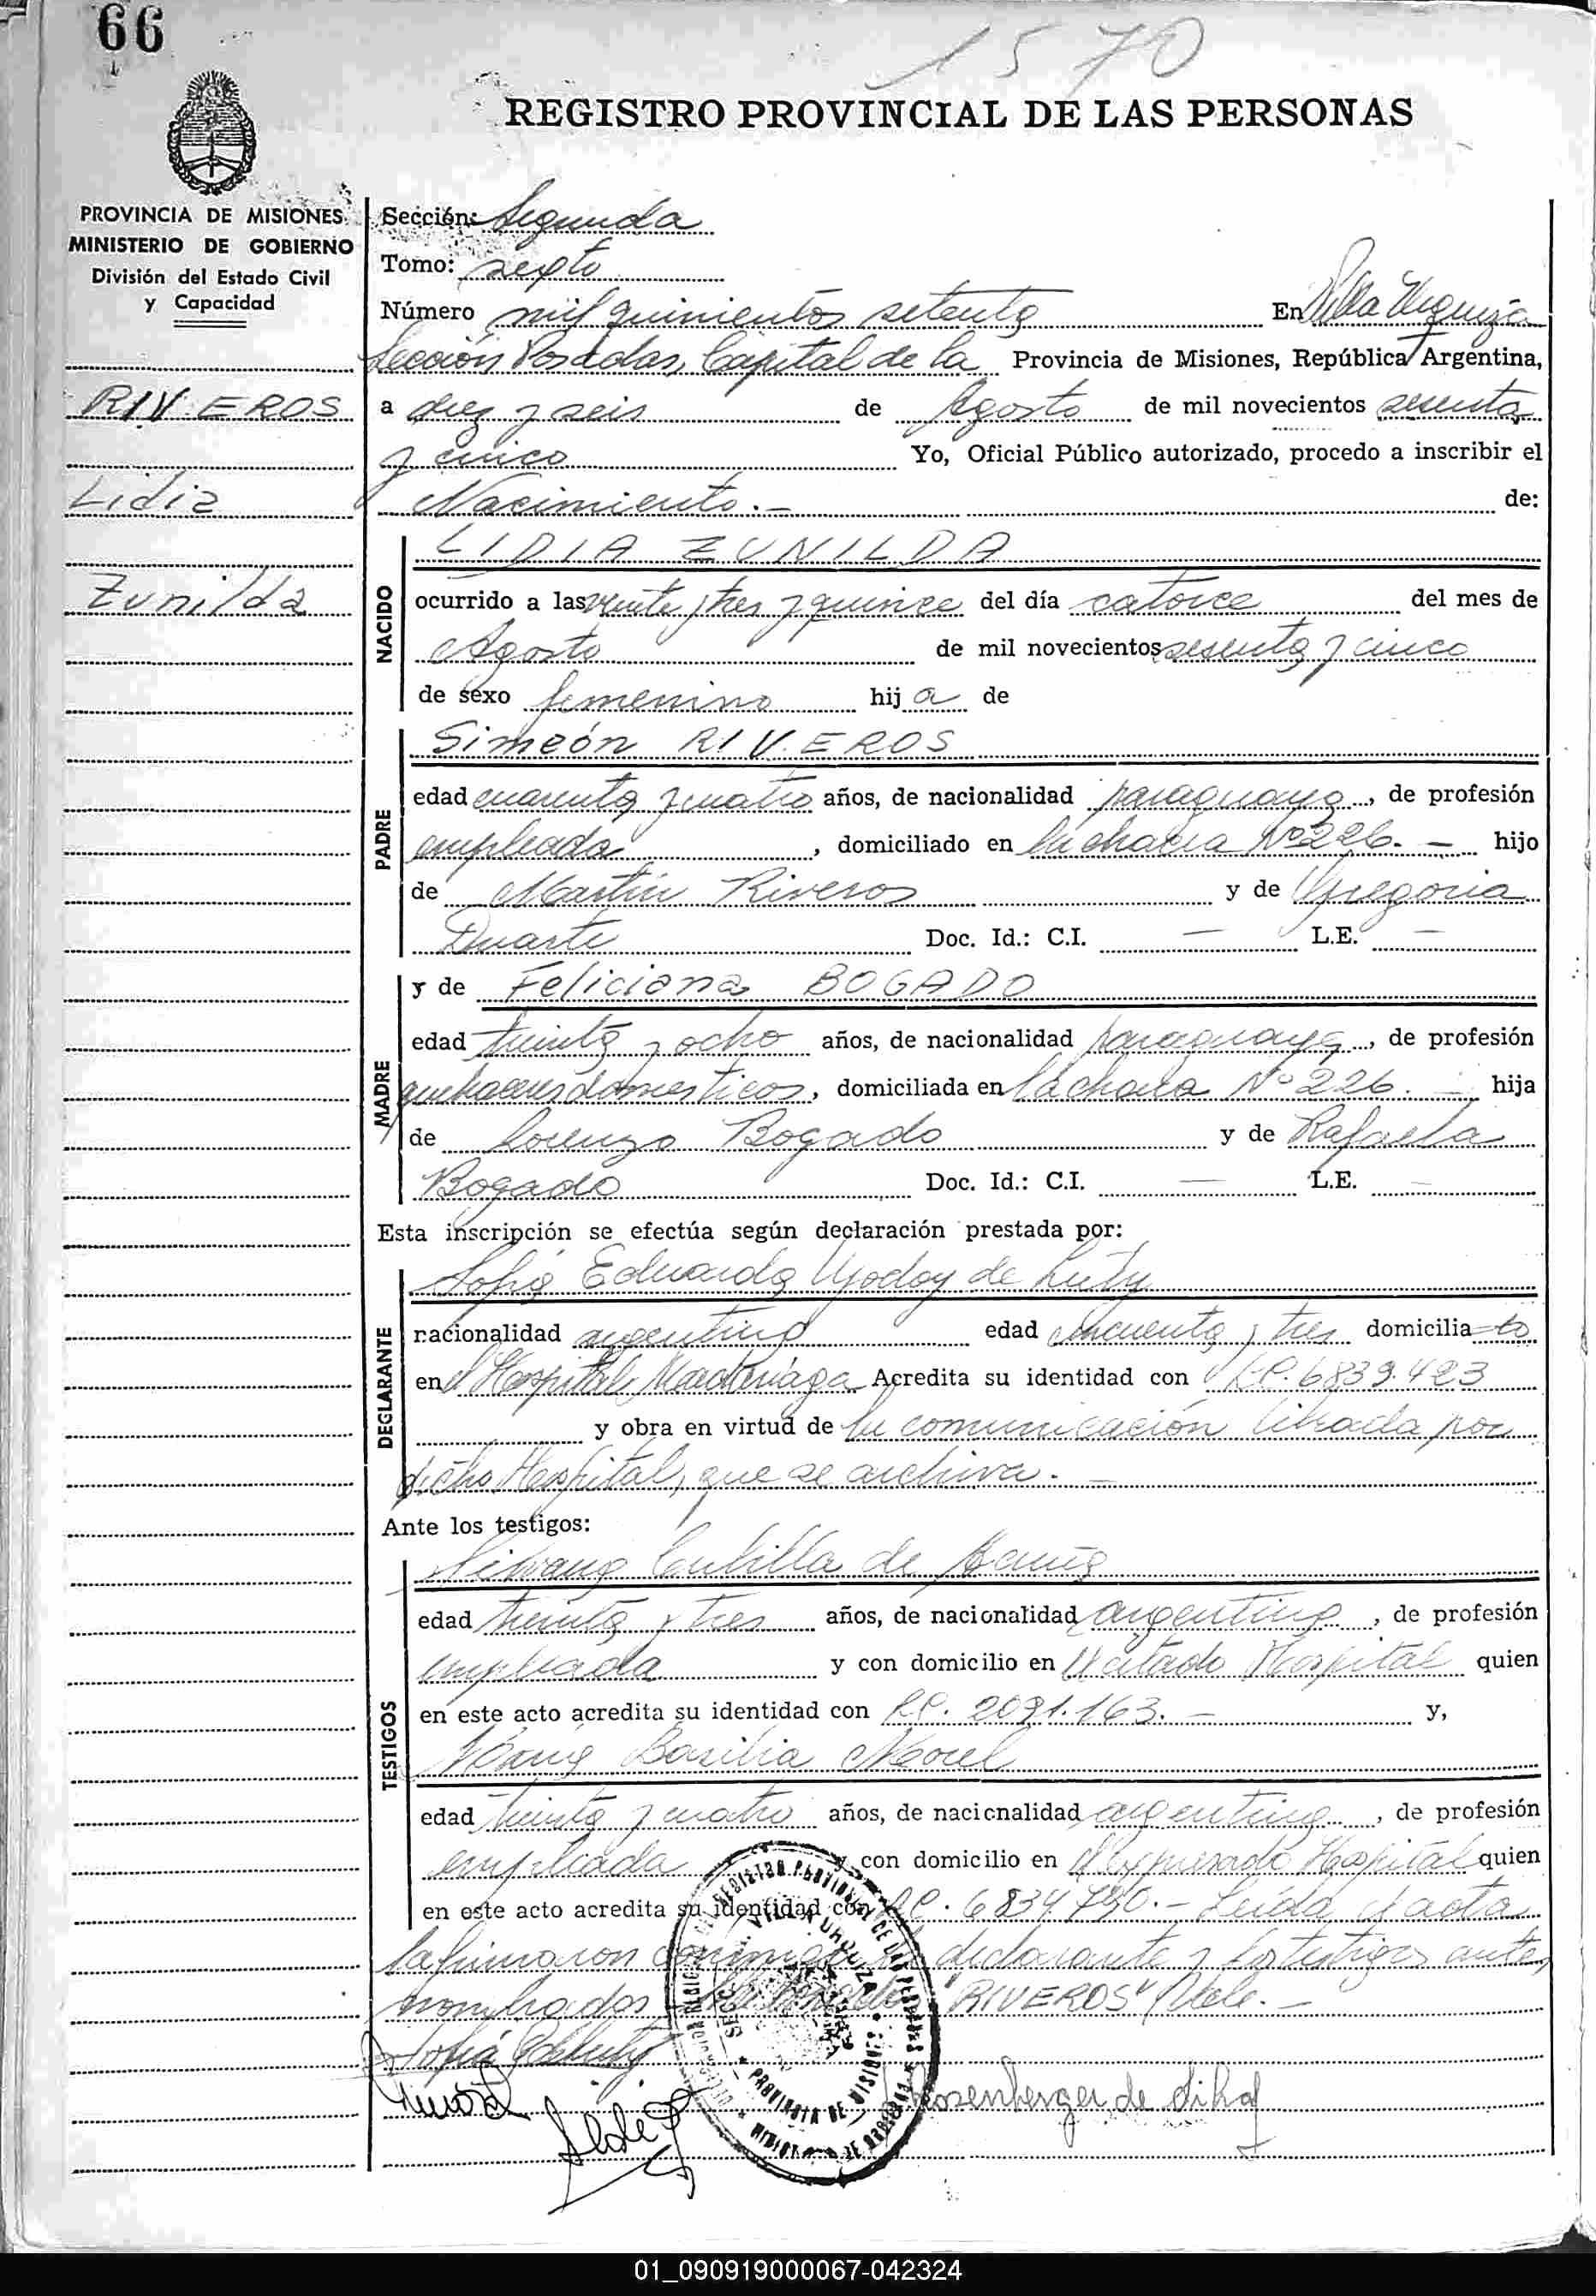 66
1570
REGISTRO PROVINCIAL DE LAS PERSONAS
PROVINCIA DE MISIONES
MINISTERIO DE GOBIERNO
División del Estado Civil
y Capacidad
RIVEROS
Lidia
Zunilda
Sección: Segunda
Tomo: sexto
Número mil quinientos setenta En Villa Urquiza
Sección Posadas, Capital de la Provincia de Misiones, República Argentina,
a diez y seis de Agosto de mil novecientos sesenta
y cinco Yo, Oficial Público autorizado, procedo a inscribir el
Nacimiento.- de:
NACIDO
LIDIA ZUNILDA
ocurrido a las veinte y tres y quince del día catorce del mes de
Agosto de mil novecientos sesenta y cinco
de sexo femenino hija de
PADRE
Simeón RIVEROS
edad cuarenta y cuatro años, de nacionalidad paraguaya, de profesión
empleado, domiciliado en la chacra Nº 226.- hijo
de Martín Riveros y de Gregoria
Duarte Doc. Id.: C.I. — L.E. —
MADRE
y de Feliciana BOGADO
edad treinta y ocho años, de nacionalidad paraguaya, de profesión
quehaceres domesticos, domiciliada en la chacra Nº 226. hija
de Lorenzo Bogado y de Rafaela
Bogado Doc. Id.: C.I. — L.E. —
Esta inscripción se efectúa según declaración prestada por:
DECLARANTE
Sofia Eduarda Godoy de
nacionalidad argentina edad cincuenta y tres domicilia
en el Hospital Madariaga Acredita su identidad con 6839.423
y obra en virtud de la comunicación librada por
dicho Hospital, que se archiva.-
Ante los testigos:
TESTIGOS
de
edad treinta y tres años, de nacionalidad argentina, de profesión
empleada y con domicilio en el citado Hospital quien
en este acto acredita su identidad con 2091.163.- y,
Basilia Morel
edad treinta y cuatro años, de nacionalidad argentina, de profesión
empleada y con domicilio en el expresado Hospital quien
en este acto acredita su identidad con 6834.780.- Leída el acta
la firmaron conmigo el declarante y los testigos antes
nombrados "RIVEROS" Vale.-
Sofía
Rosenberger de
VILLA URQUIZA
PROVINCIA DE MISIONES
01_090919000067-042324